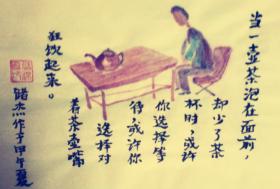 当一壶茶泡在面前，
却少了茶
杯时，或许
你选择等
待，或许你
选择对
着茶壶嘴
狂饮起来。
杰作于甲午夏